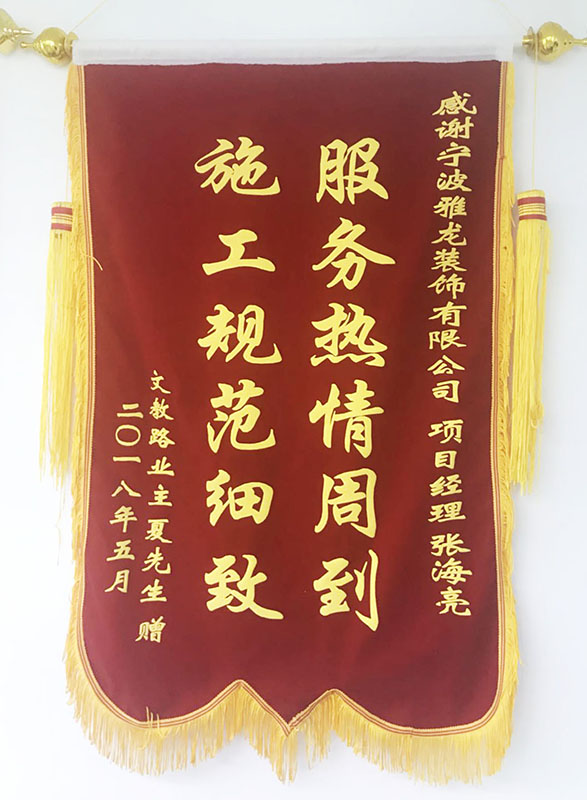 感谢宁波雅龙装饰有限公司 项目经理 张海亮
服务热情周到
施工规范细致
文教路业主夏先生 赠
二〇一八年五月